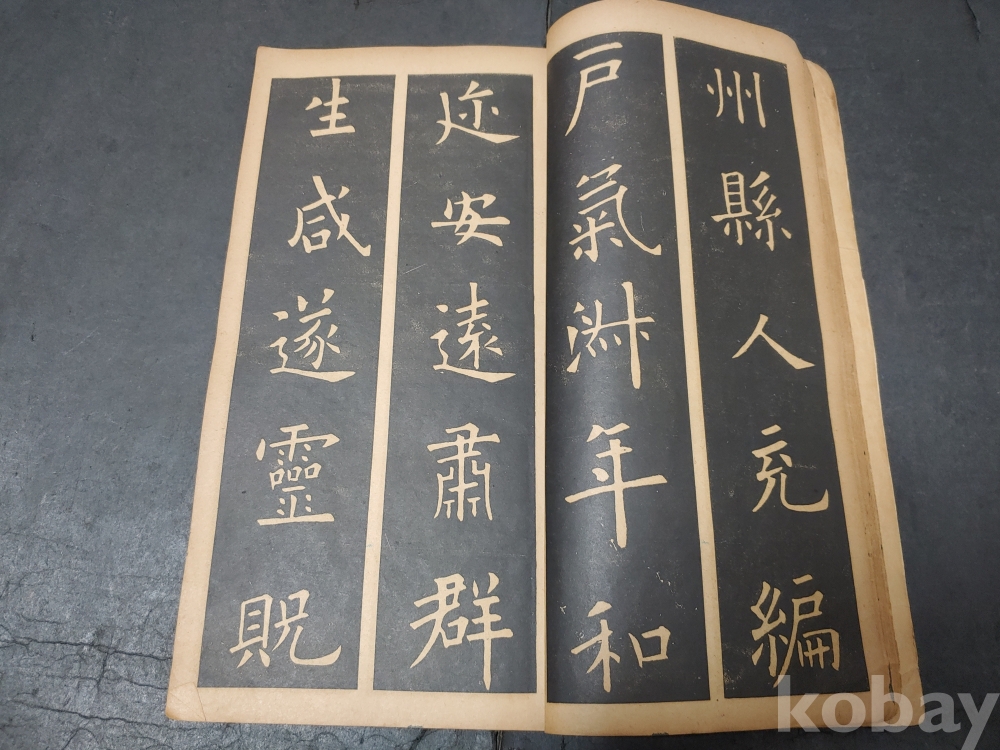 州縣人充編
戶氣淋年和
迩安遠肅群
生咸遂靈貺
kobay